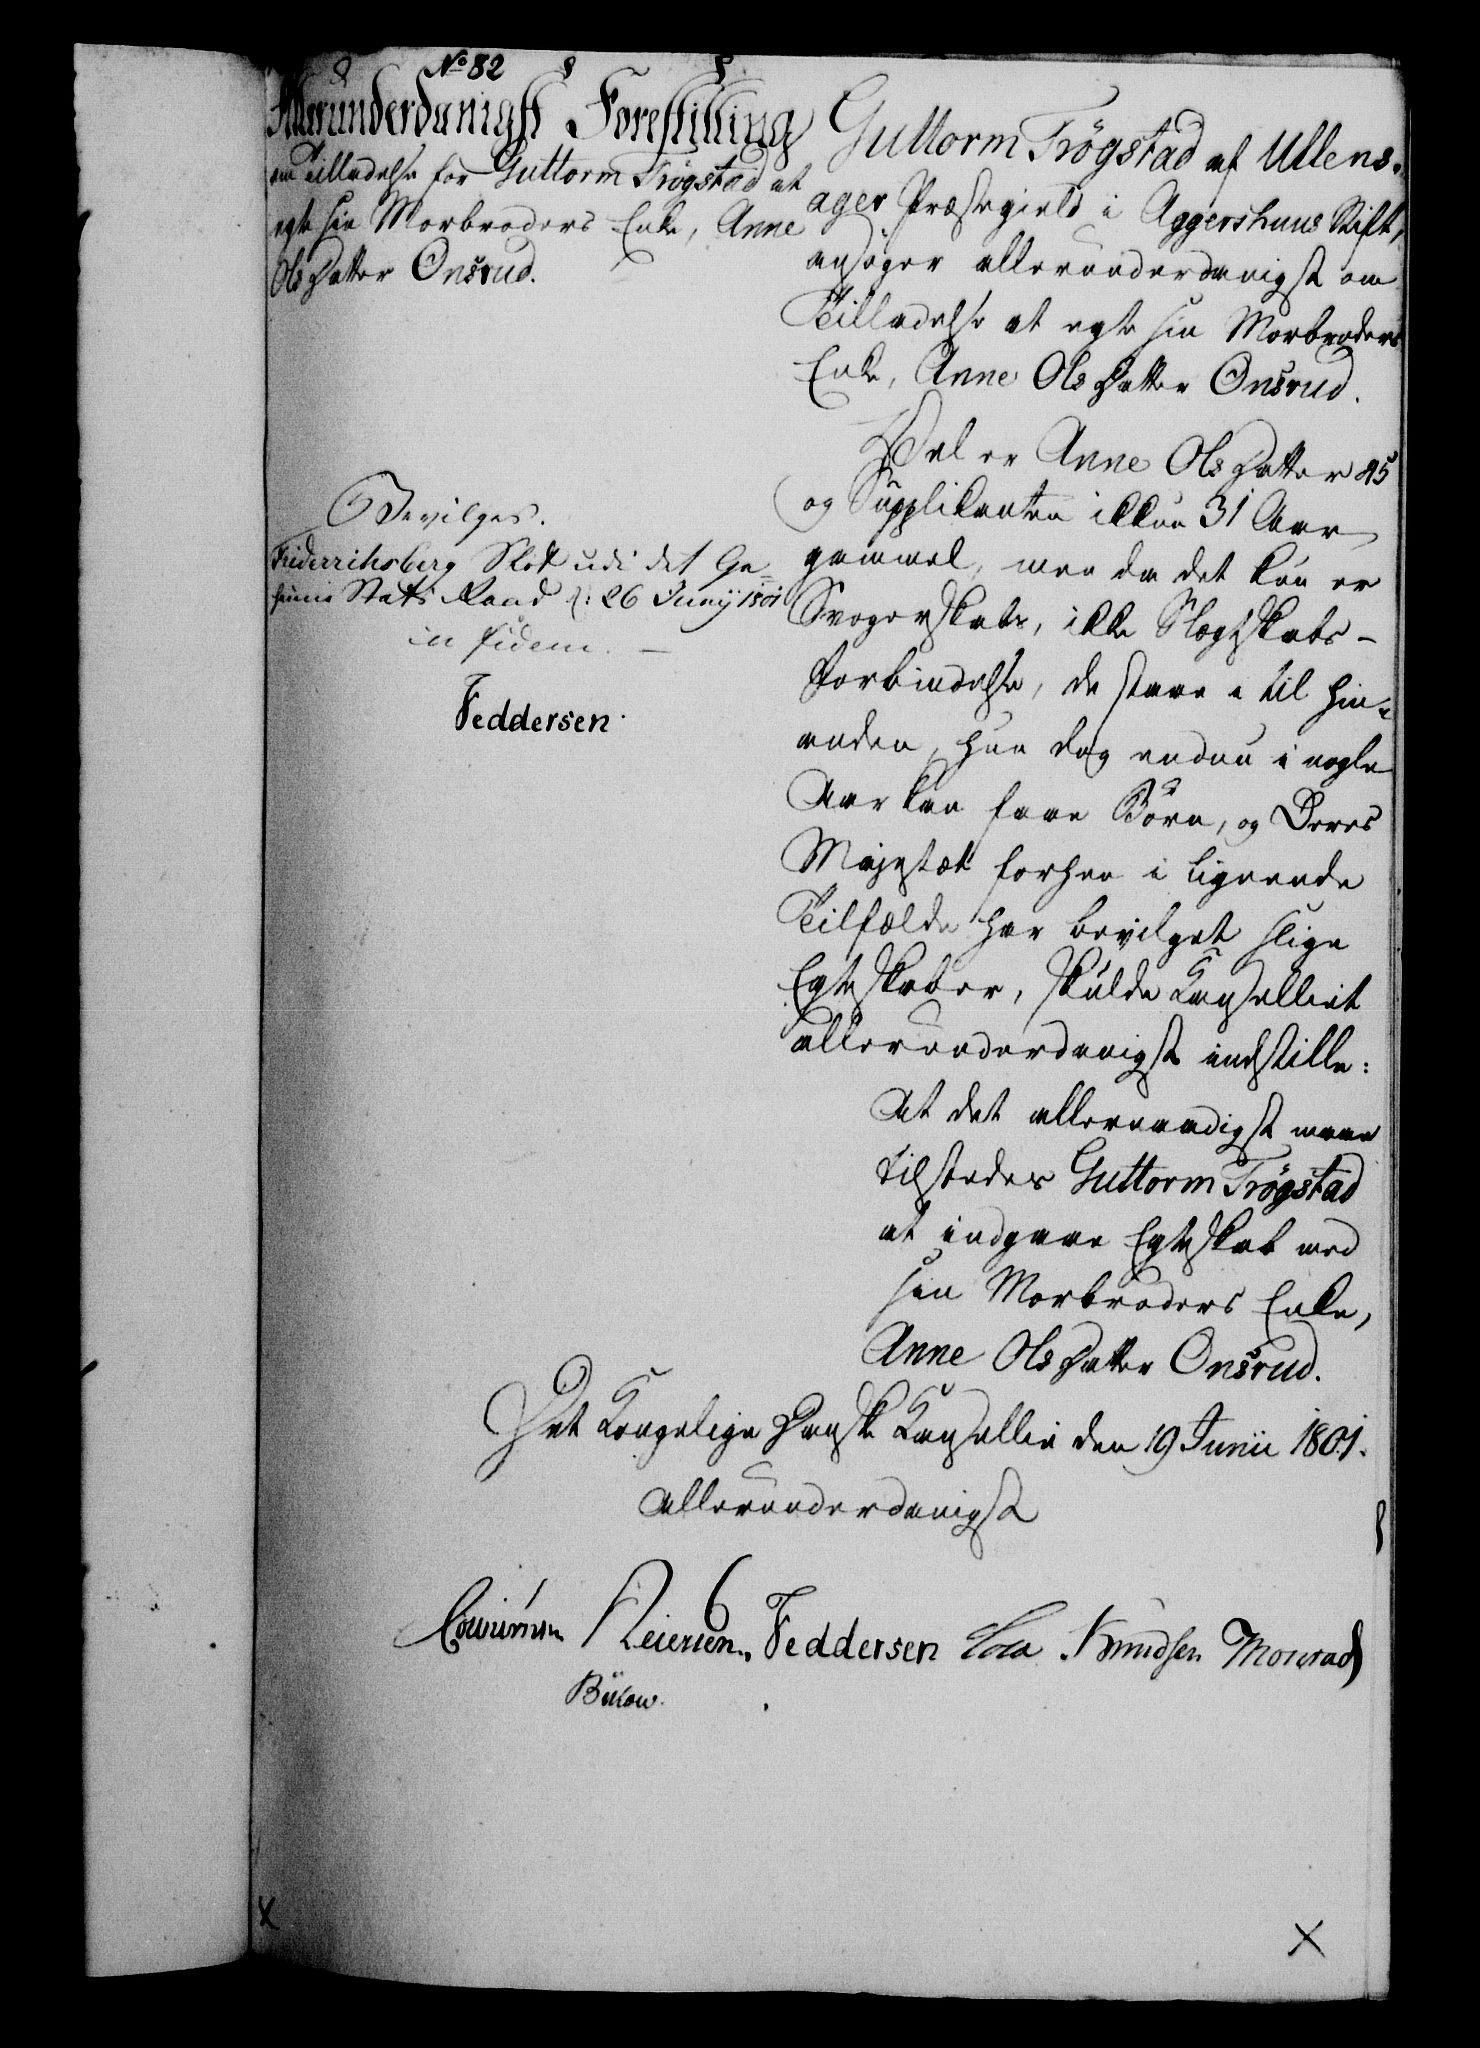 No 82
Allerunderdanigst Forestilling
om Tilladelse for Guttorm Trögstad at
egte sin Morbroders Enke, Anne
Olsdatter Onsrud.
Bevilges.
Friderichsberg Slot udi det Ge-
heime Stats Raad d: 26 Junij 1801
in fidem.
Feddersen.
Guttorm Trögstad af Ullens-
ager Præstegield i Aggershuus Stift,
ansøger allerunderdanigst om
Tilladelse at egte sin Morbroders
Enke, Anne Olsdatter Onsrud.
Vel er Anne Olsdatter 45
og Supplikanten ikkun 31 Aar
gammel, men da det kun er
Svogerskabs, ikke Slægtskabs-
Forbindelse, de staae i til hin-
anden, hun dog endnu i nogle
Aar kan faae Børn, og Deres
Majestæt forhen i lignende
Tilfælde har bevilget slige
Egteskaber, skulde Kanselliet
allerunderdanigst indstille:
At det allernaadigst maae
tilstedes Guttorm Trögstad
at indgaae Egteskab med
sin Morbroders Enke,
Anne Olsdatter Onsrud.
Det Kongelige Danske Kansellie den 19 Junii 1801.
allerunderdanigst
Reiersen. Feddersen Knudsen Monrad
Bülow.